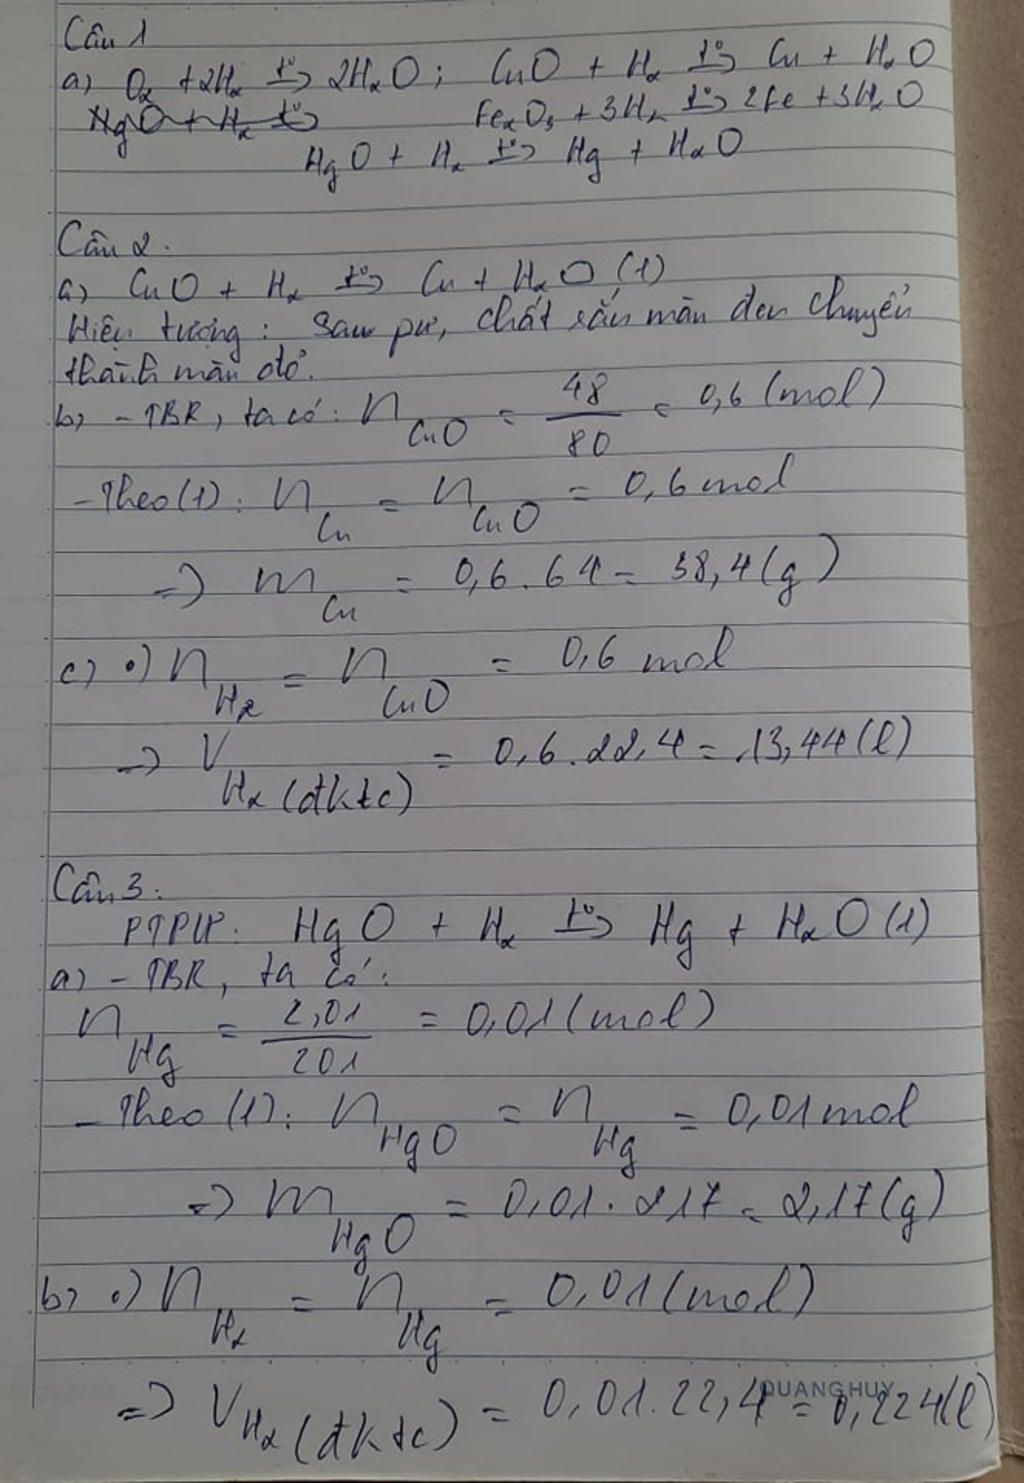 Câu 1
a) O₂ + 2H₂ t°→ 2H₂O ; CuO + H₂ t°→ Cu + H₂O
HgO + H₂ t°→ Fe₂O₃ + 3H₂ t°→ 2Fe + 3H₂O
HgO + H₂ t°→ Hg + H₂O
Câu 2.
a) CuO + H₂ t°→ Cu + H₂O (1)
Hiện tượng : Sau pư, chất rắn màu đen chuyển
thành màu đỏ.
b) - TBR, ta có: n_CuO = 48/80 = 0,6 (mol)
- Theo (1): n_Cu = n_CuO = 0,6 mol
=> m_Cu = 0,6 . 64 = 38,4 (g)
c) •) n_H₂ = n_CuO = 0,6 mol
=> V_H₂ (đktc) = 0,6 . 22,4 = 13,44 (l)
Câu 3:
PTPƯ: HgO + H₂ t°→ Hg + H₂O (1)
a) - TBR, ta có:
n_Hg = 2,01/201 = 0,01 (mol)
- Theo (1): n_HgO = n_Hg = 0,01 mol
=> m_HgO = 0,01 . 217 = 2,17 (g)
b) •) n_H₂ = n_Hg = 0,01 (mol)
QUANG HUY
=> V_H₂ (đktc) = 0,01 . 22,4 = 0,224 (l)